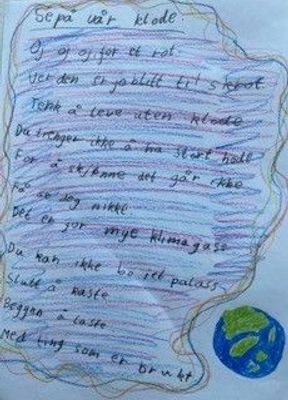 Se på vår klode.
Oj oj oj for et rot.
Verden er jo blitt til skrot
Tenk å leve uten klode
Du trenger ikke å ha stort hode
For å skjønne det går ikke
Få deg nikke
Det er for mye klimagass
Du kan ikke bo i et palass
Slutt å kaste
Beggyn å laste
Med ting som er brukt